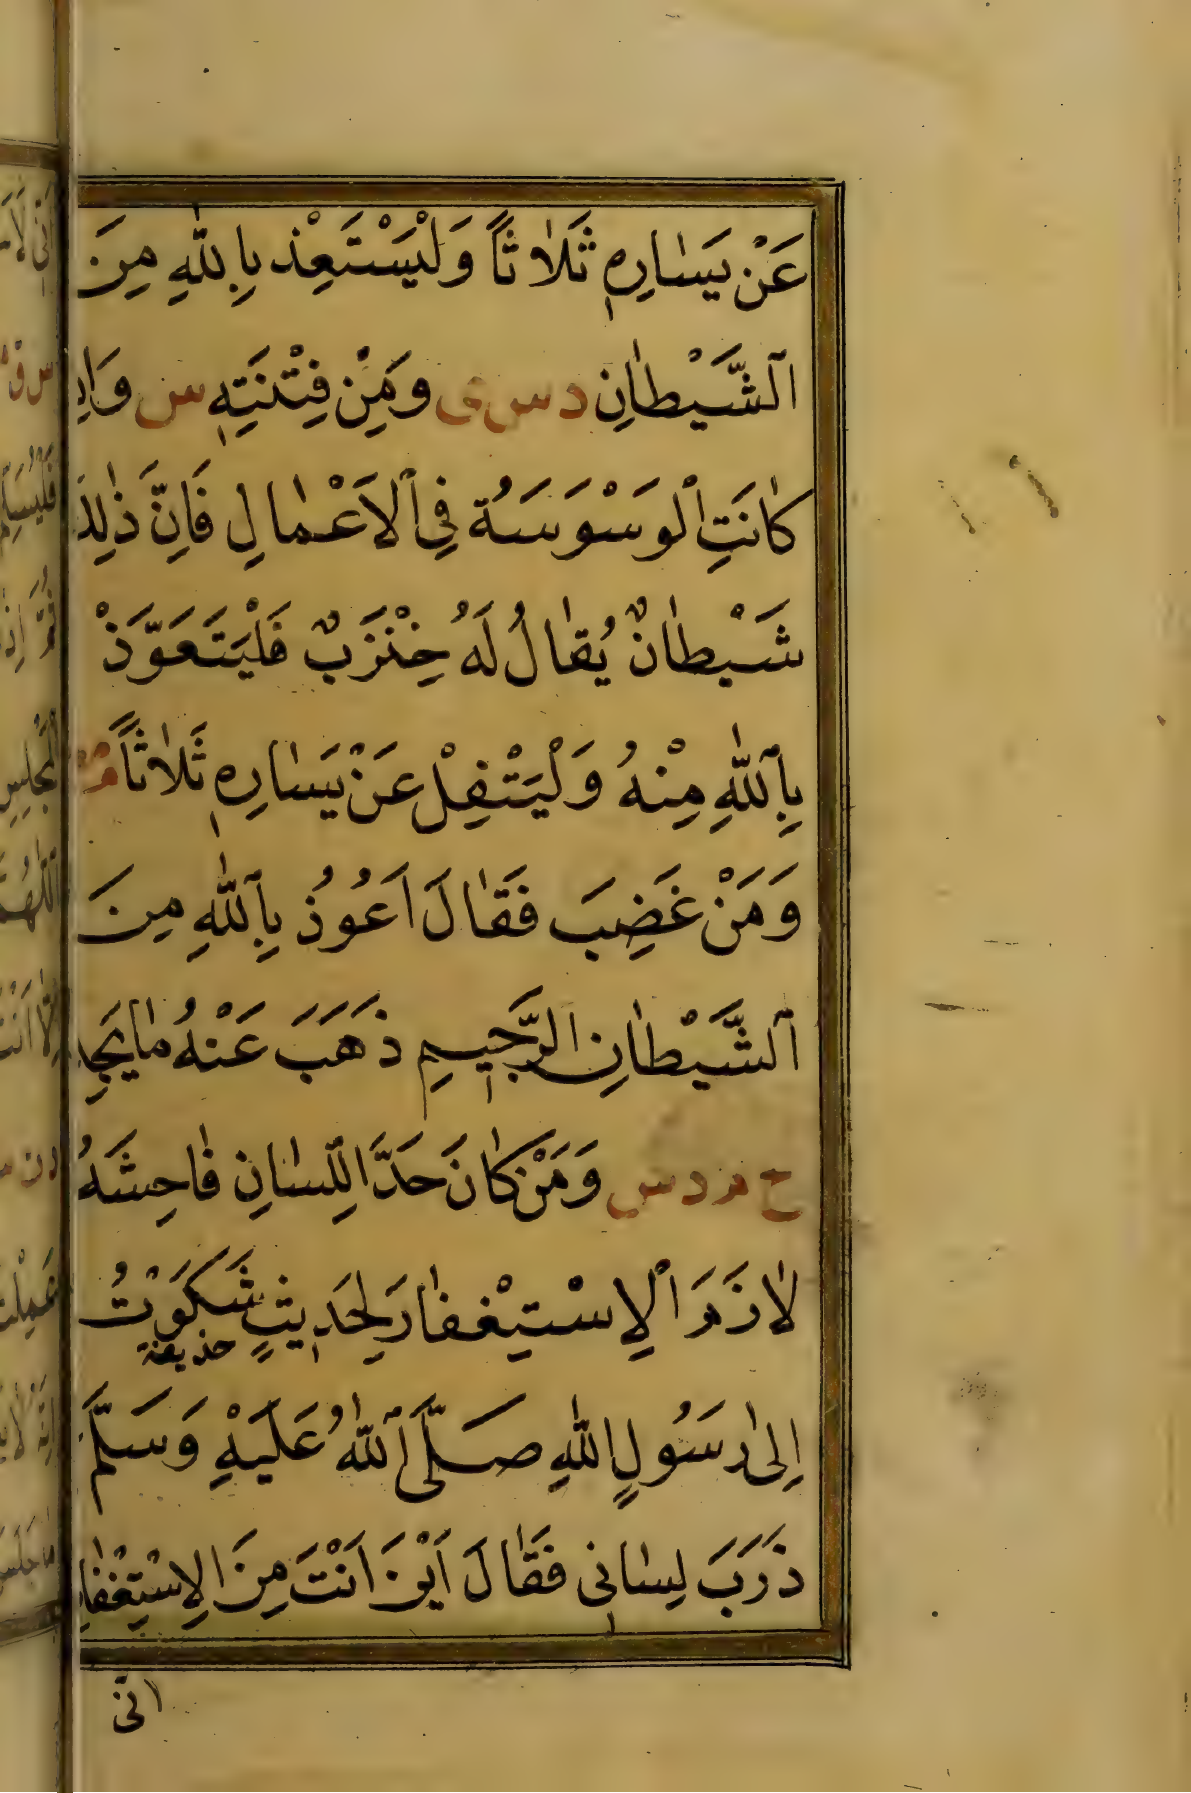 عَنْ يَسٰارِهِ ثَلٰاثًا وَلْيَسْتَعِذْ بِاللّٰهِ مِنَ
اَلشَّيْطٰانِ د س ى وَمِنْ فِتْنَتِهِ س وَاِن
كٰانَتِ الْوَسْوَسَةُ فِى الْاَعْمٰالِ فَاِنَّ ذٰلِكَ
شَيْطٰانٌ يُقٰالُ لَهُ خِنْزَبٌ فَلْيَتَعَوَّذْ
بِاللّٰهِ مِنْهُ وَلْيَتْفِلْ عَنْ يَسٰارِهِ ثَلٰاثًا
وَمَنْ غَضِبَ فَقٰالَ اَعُوذُ بِاللّٰهِ مِنَ
اَلشَّيْطٰانِ الرَّجِيمِ ذَهَبَ عَنْهُ مٰا يَجِدُ
خ م د س وَمَنْ كٰانَ حَدَّ اللِّسٰانِ فٰاحِشَهُ
لٰازَمَ الْاِسْتِغْفٰارَ لِحَدِيثِ شَكَوْتُ
حذيفة
اِلىٰ رَسُولِ اللّٰهِ صَلَّى اللّٰهُ عَلَيْهِ وَسَلَّمَ
ذَرَبَ لِسٰانِى فَقٰالَ اَيْنَ اَنْتَ مِنَ الْاِسْتِغْفٰارِ
انّى